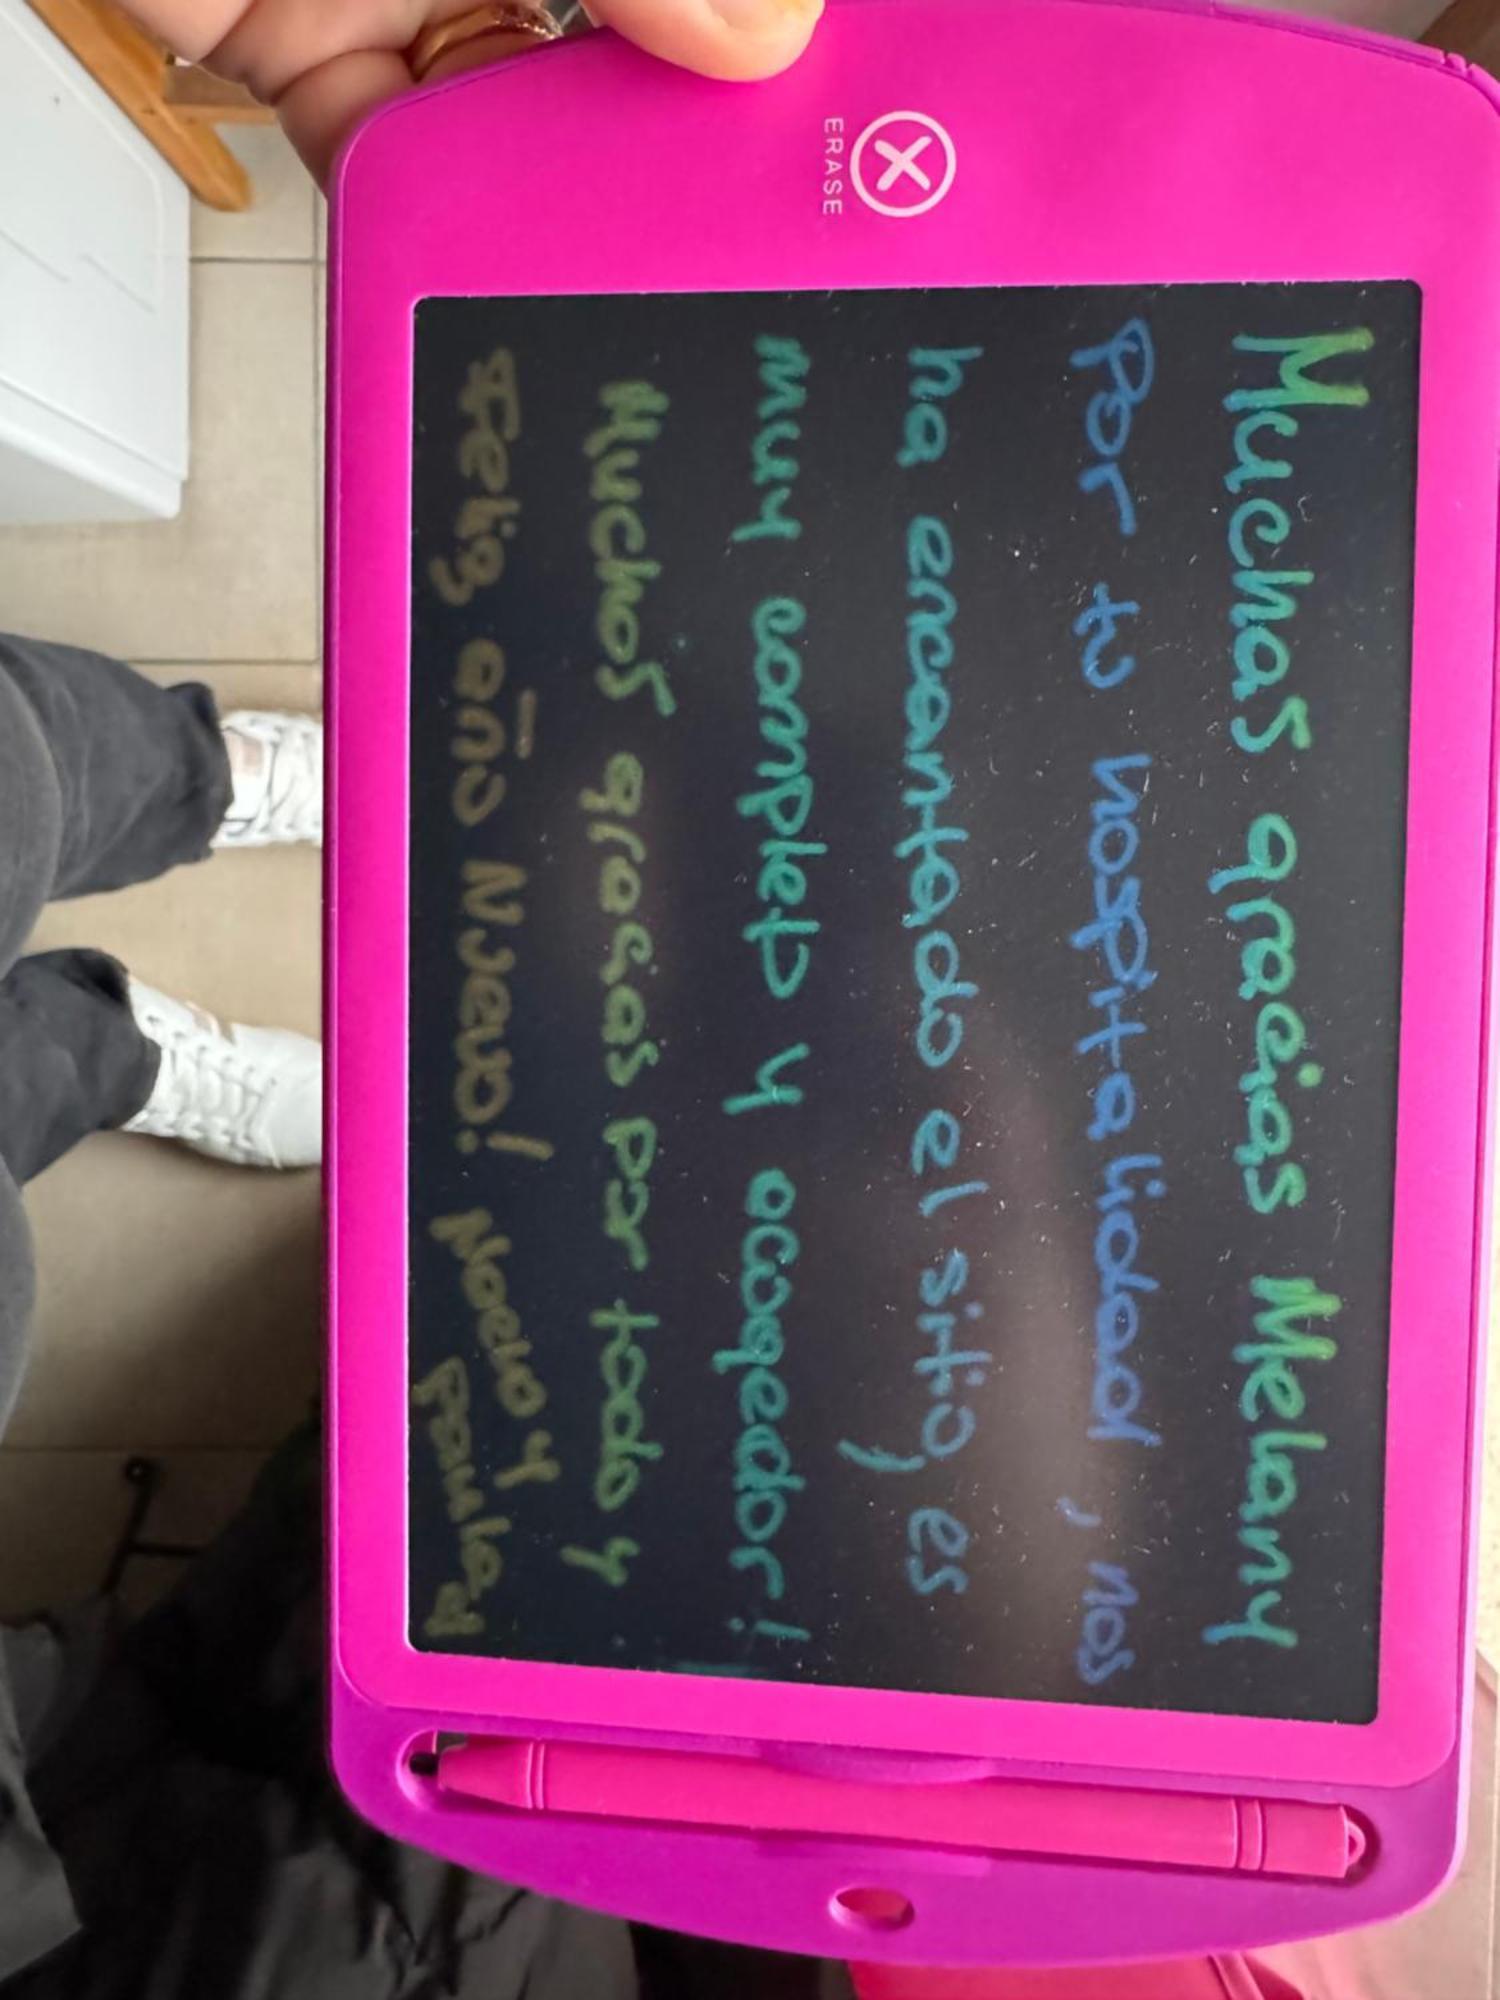 ERASE
Muchas gracias Melany
por tu hospitalidad, nos
ha encantado el sitio, es
muy completo y acogedor!
Muchas gracias por todo y
Feliz año Nuevo! Nacho y
Paula